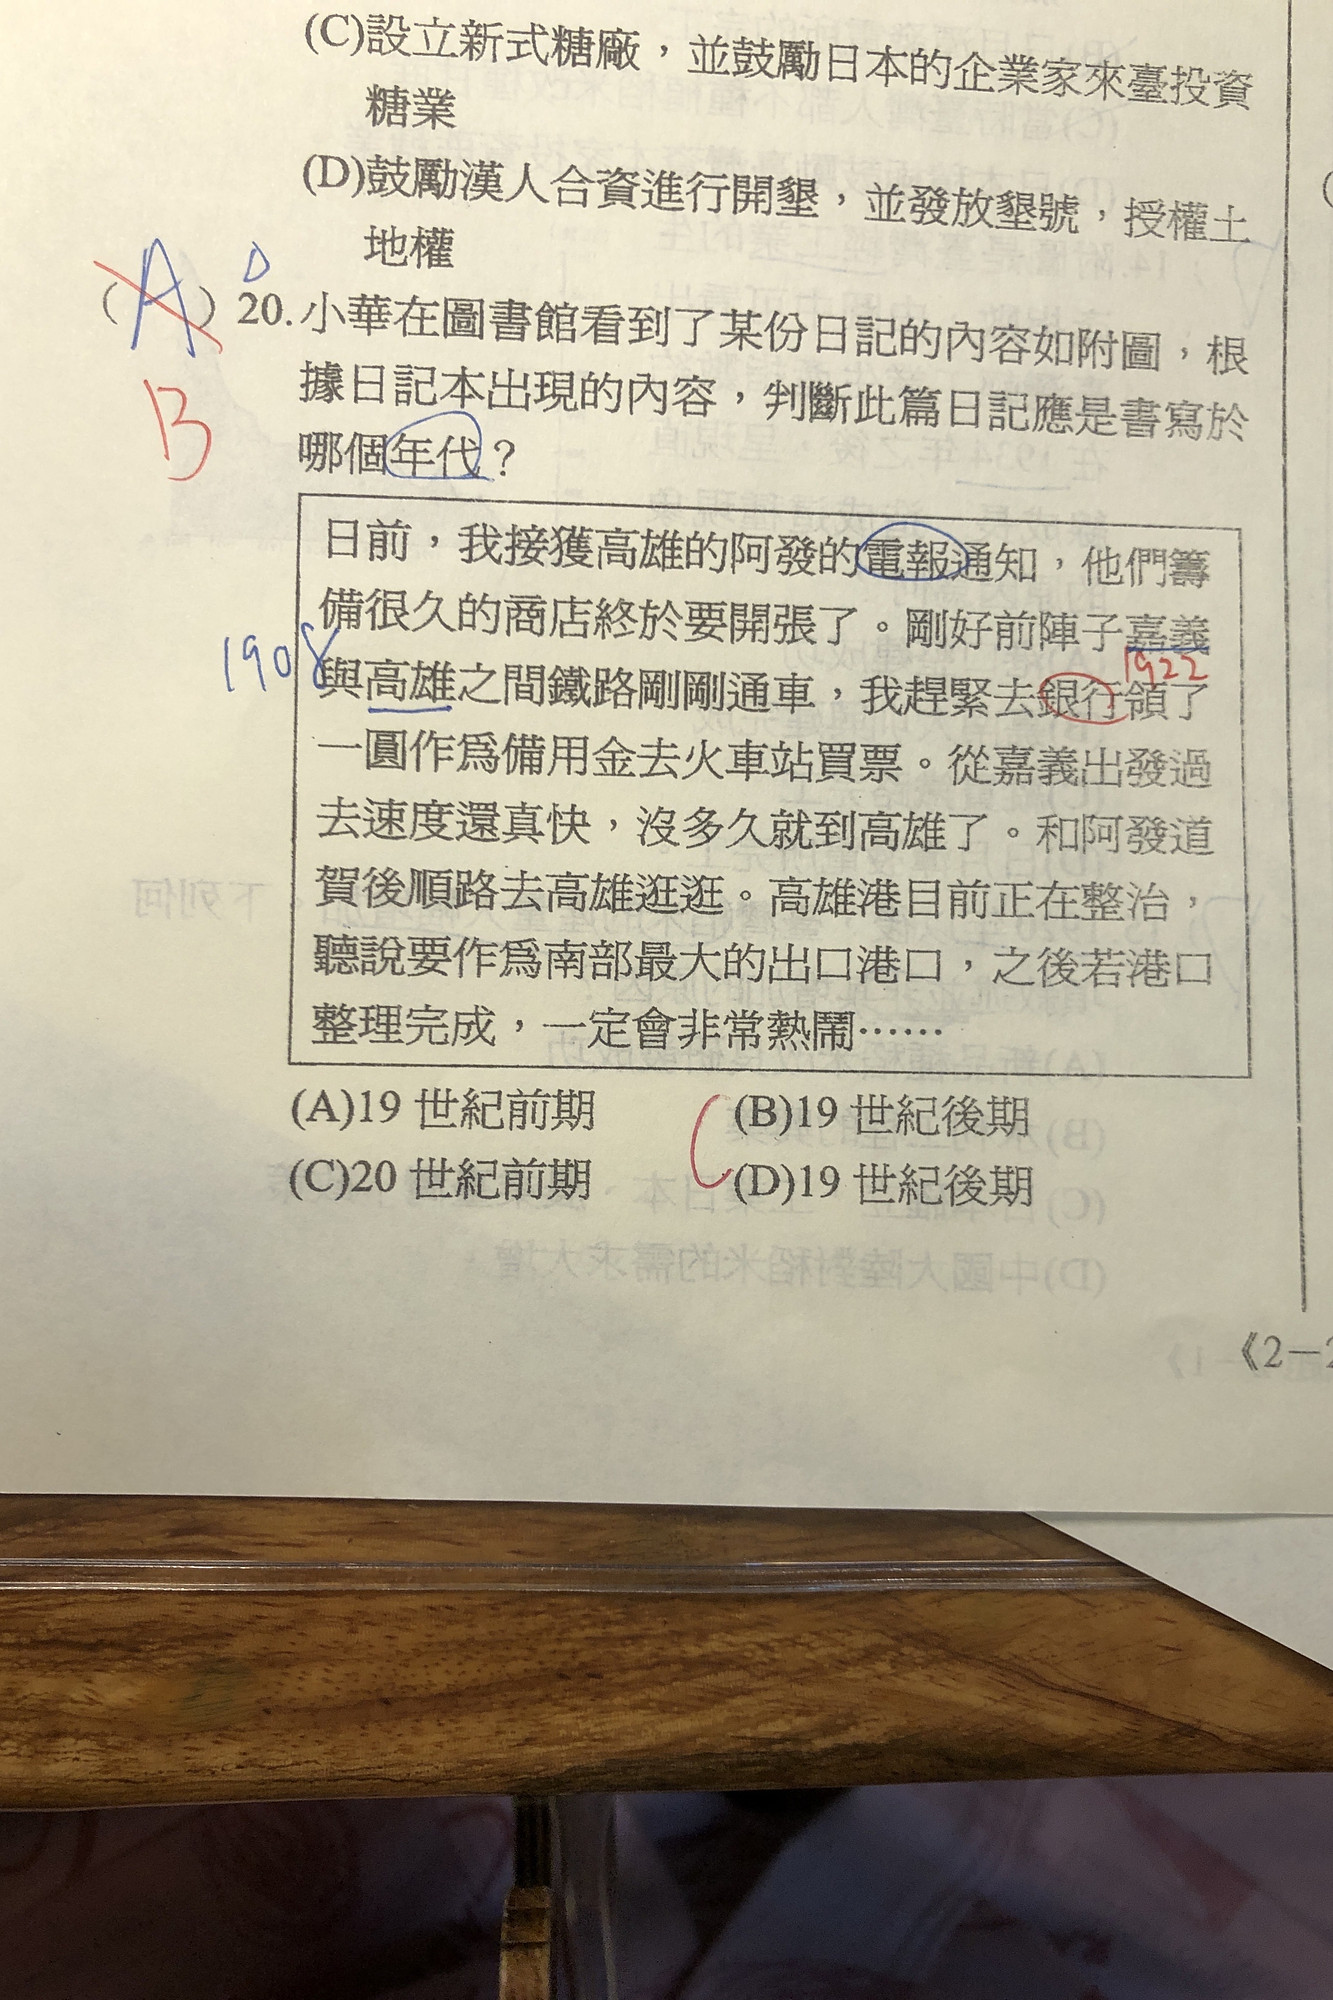 (C)設立新式糖廠，並鼓勵日本的企業家來臺投資
糖業
(D)鼓勵漢人合資進行開墾，並發放墾號，授權土
地權
(A) D 20.小華在圖書館看到了某份日記的內容如附圖，根
B
據日記本出現的內容，判斷此篇日記應是書寫於
哪個年代？
日前，我接獲高雄的阿發的電報通知，他們籌
備很久的商店終於要開張了。剛好前陣子嘉義
1908
1922
與高雄之間鐵路剛剛通車，我趕緊去銀行領了
一圓作為備用金去火車站買票。從嘉義出發過
去速度還真快，沒多久就到高雄了。和阿發道
賀後順路去高雄逛逛。高雄港目前正在整治，
聽說要作為南部最大的出口港口，之後若港口
整理完成，一定會非常熱鬧……
(A)19 世紀前期 (B)19 世紀後期
(C)20 世紀前期 (D)19 世紀後期
《2－2